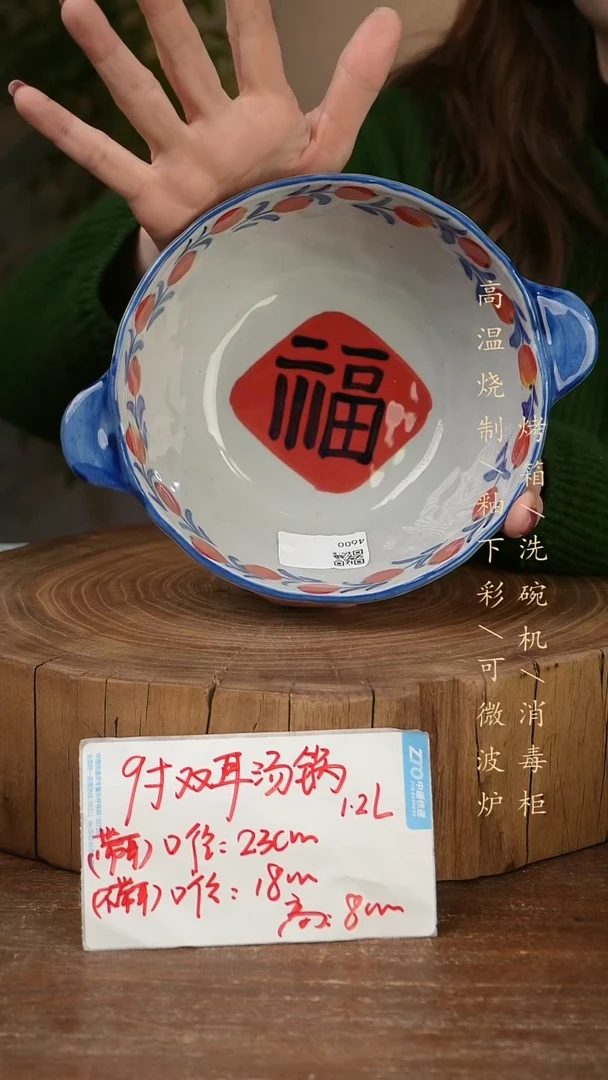 福
4600
高温烧制/釉下彩/可微波炉
烤箱/洗碗机/消毒柜
ZTO中通快递
9寸双耳汤锅
1.2L
(带耳)口径:23cm
(不带耳)口径:18cm
高:8cm